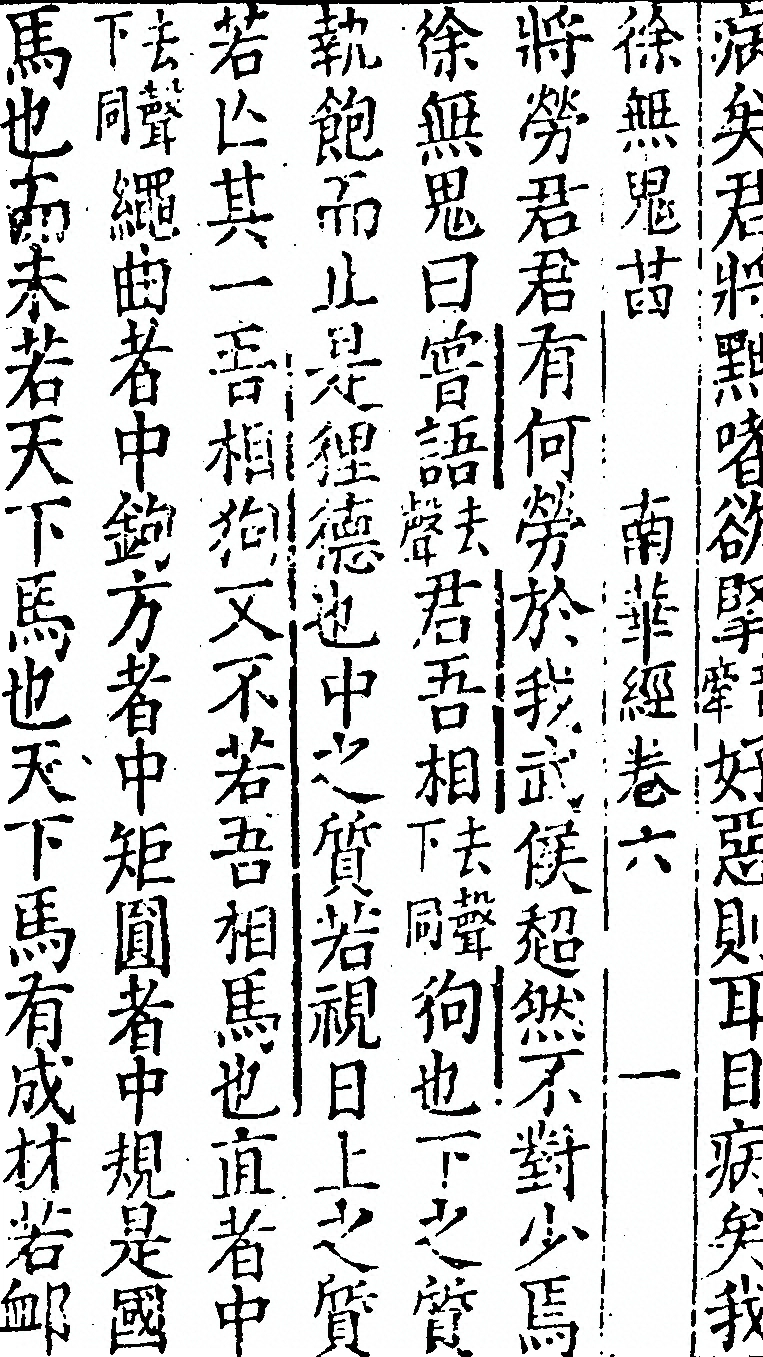 病矣君將黜嗜欲掔音牽好惡則耳目病矣我
徐無鬼 南華經卷六 一
將勞君君有何勞於我武侯超然不對少焉
徐無鬼曰嘗語去聲君吾相去聲下同狗也下之質
執飽而止是狸德也中之質若視日上之質
若亾其一吾相狗又不若吾相馬也直者中
去聲下同繩曲者中鉤方者中矩圓者中規是國
馬也而未若天下馬也天下馬有成材若卹